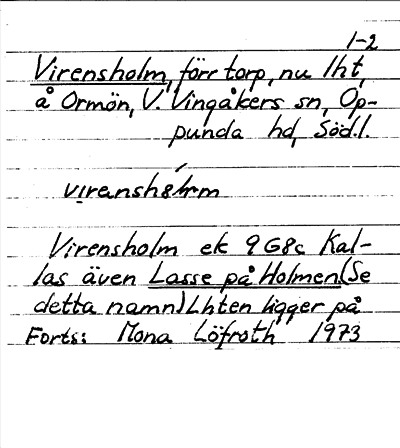 1-2
Virensholm, förr torp, nu lht,
å Ormön, V. Vingåkers sn, Op-
punda hd, Södl.
Virensholm ek 9G8c Kal-
las även Lasse på Holmen (Se
detta namn) Lhten ligger på
Forts: Mona Löfroth 1973